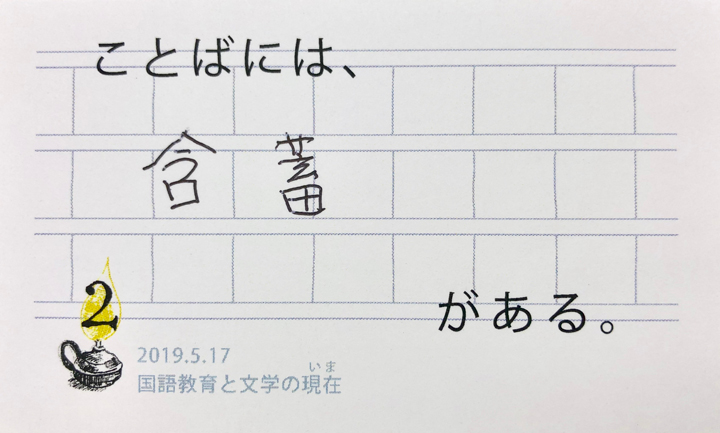 ことばには、
含蓄
がある。
2
2019.5.17
いま
国語教育と文学の現在